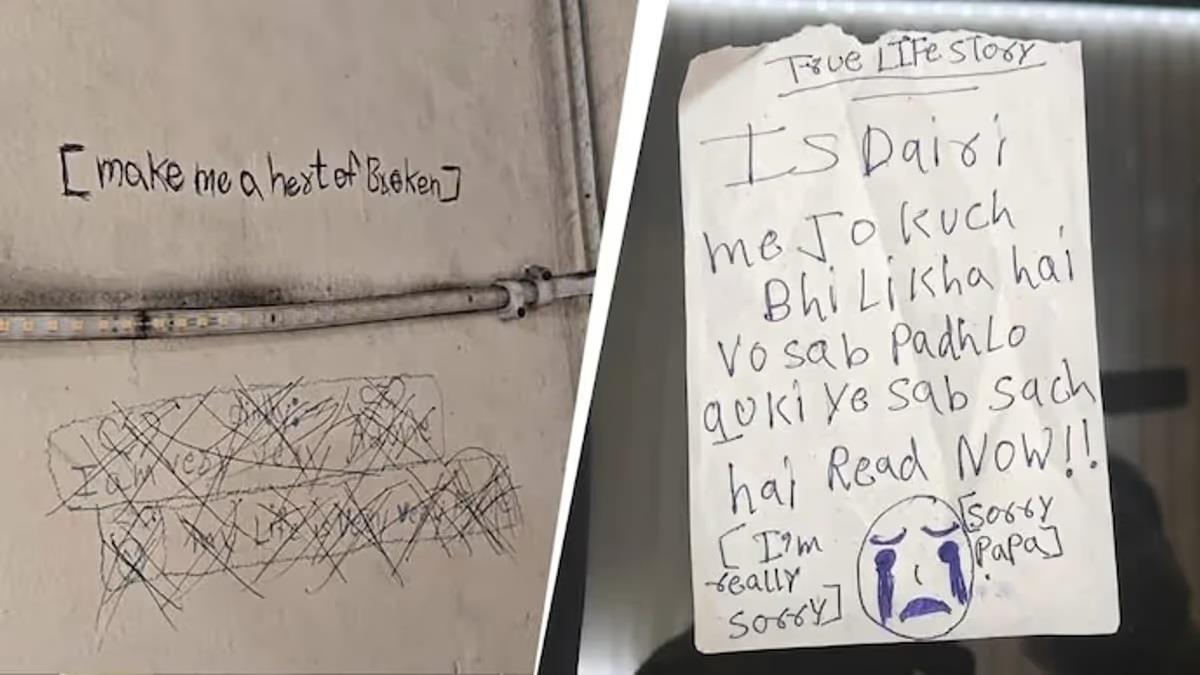 [make me a hert of Broken]
I am very
my Life is very very
TRUE LIFE STORY
IS Dairi
me Jo kuch
Bhi Likha hai
Vo sab Padh Lo
quki ye sab sach
hai Read NOW!!
[I'm
really
sorry]
[sorry
PaPa]